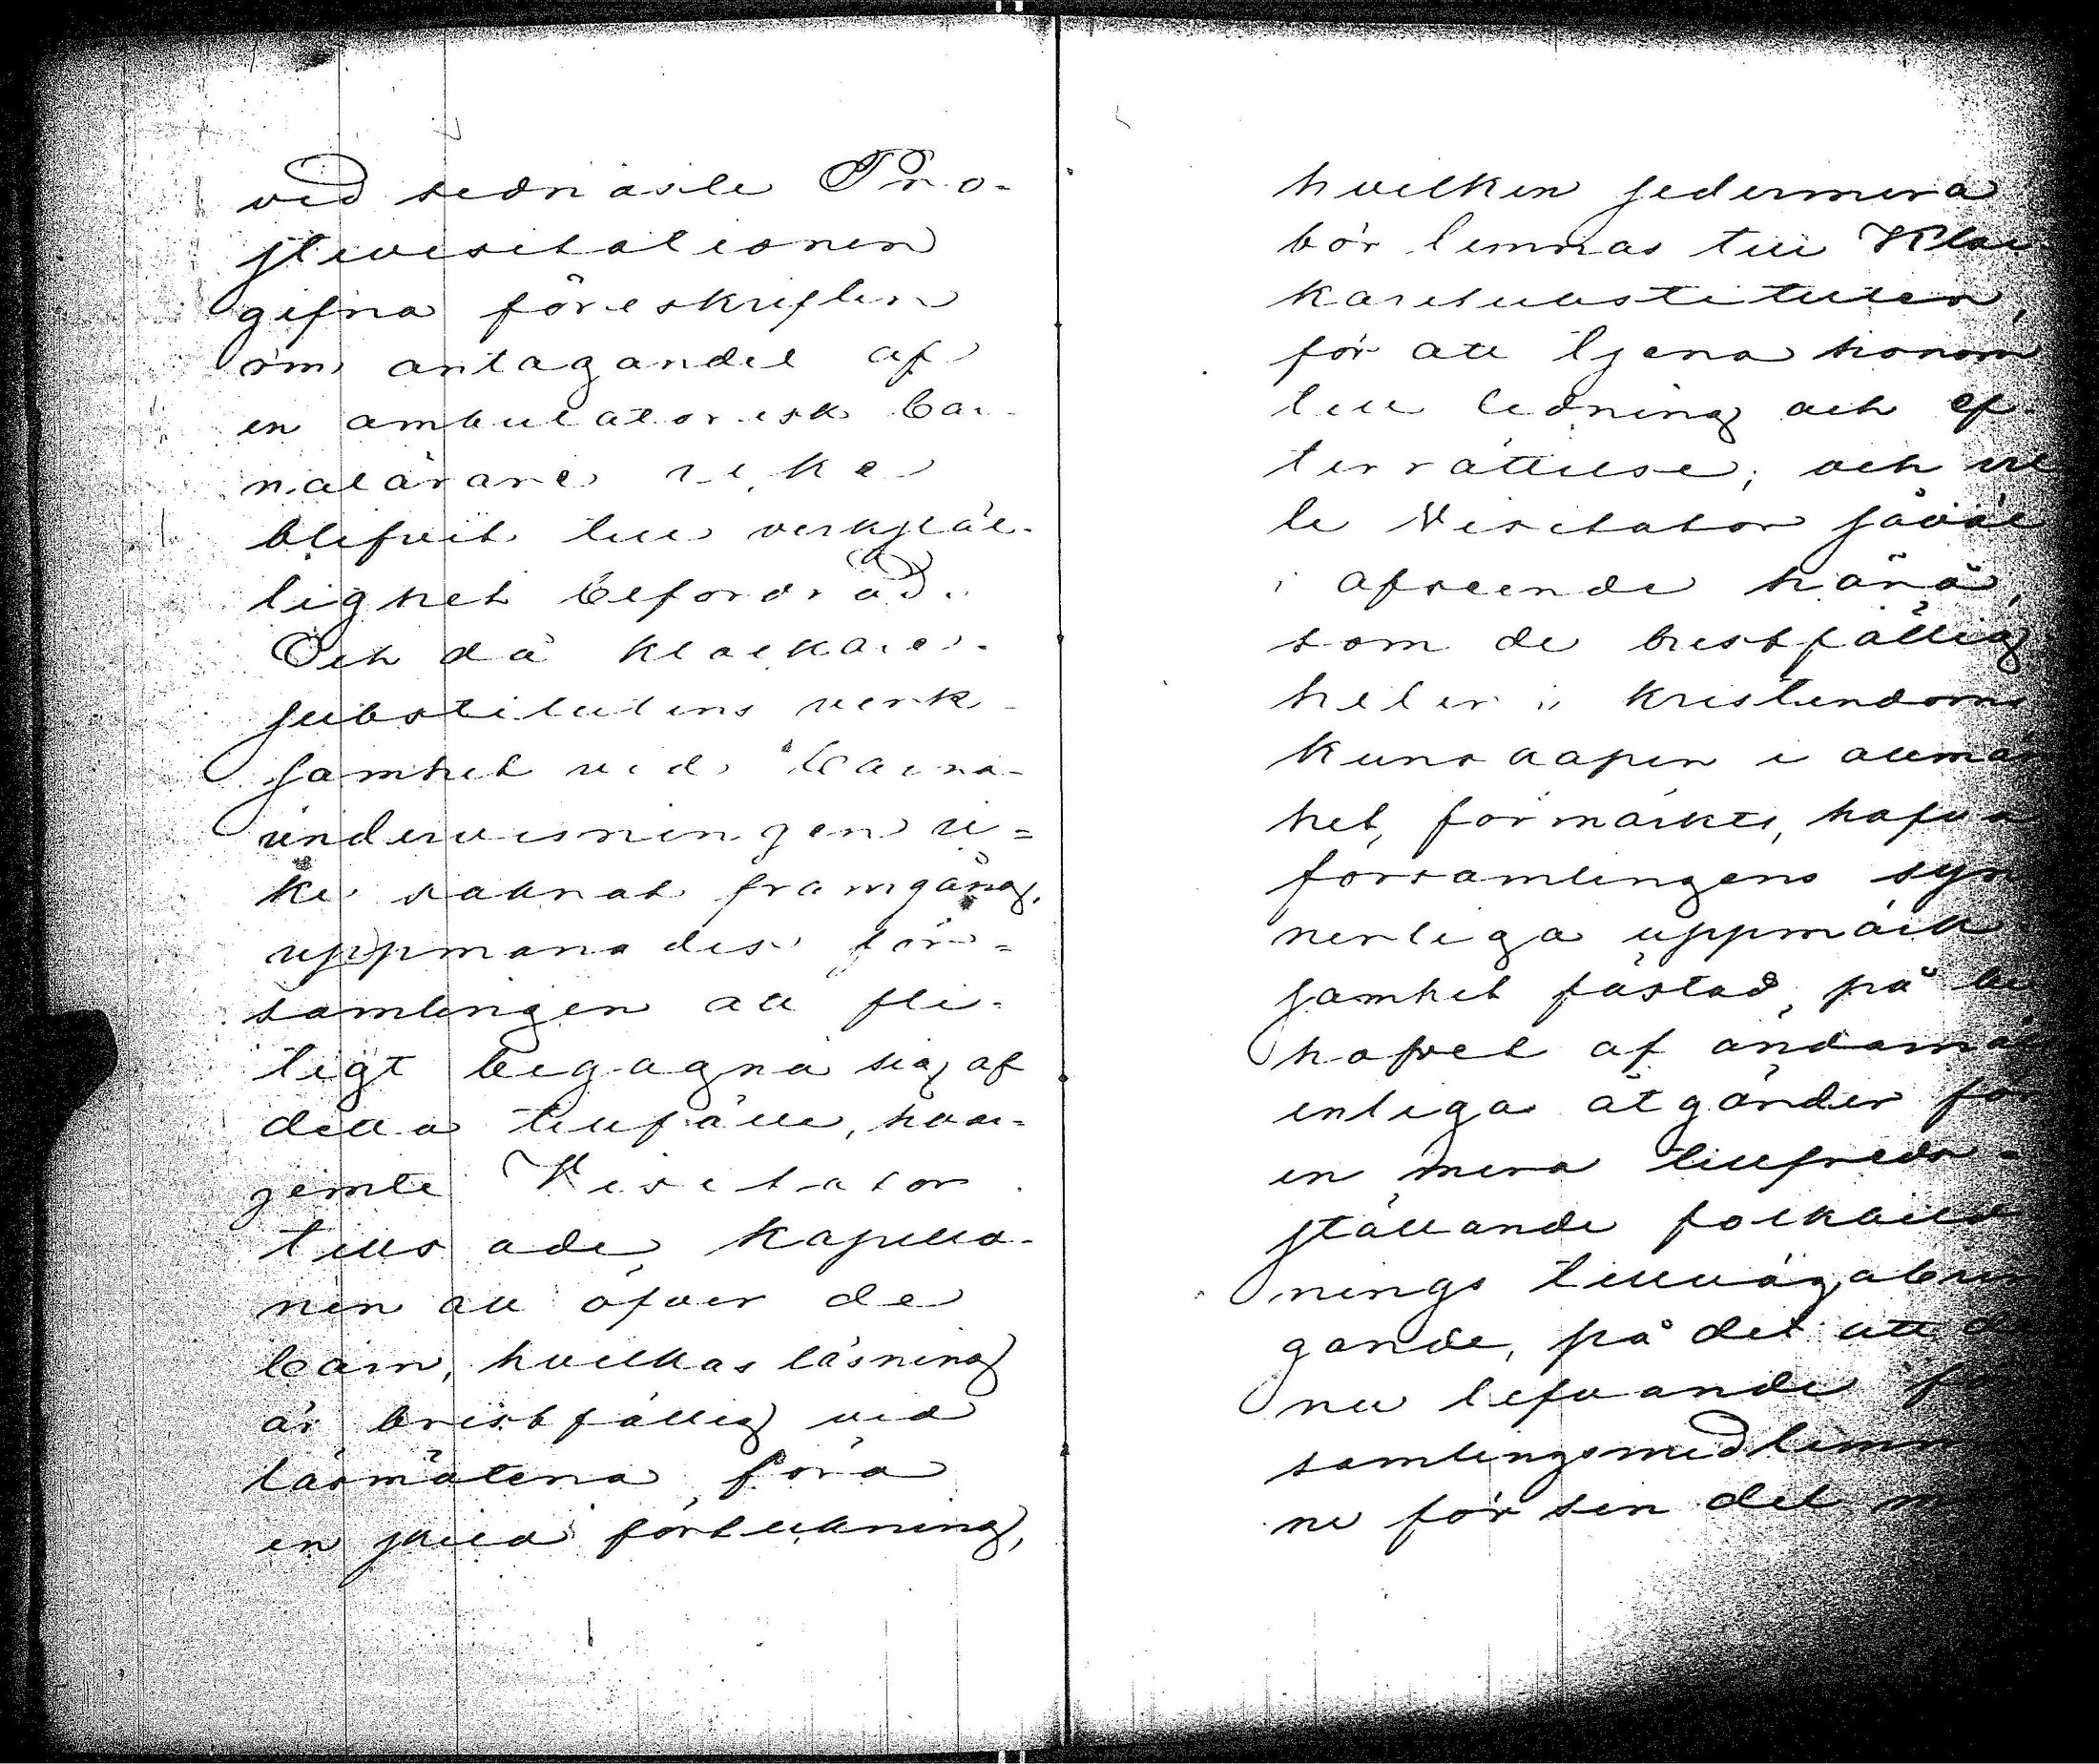 vid sednaste Pro-
stevisitationen
gifna föreskriften
om antagandet af
en ambulatorisk bar-
nalärare icke
blifvit till verkstäl-
lighet befordrad.
Och då klockare-
substitutens verk-
samhet vid barna-
undervisningen ic-
ke saknat framgång,
uppmanades för-
samlingen att fli-
tigt begagna sig af
detta tillfälle, hvar-
jemte Visitator
tillsade Kapella-
nen att öfver de
barn, hvilkas läsning
är bristfällig vid
läsmötena föra
en skild förteckning,
hvilken sedermera
bör lemnas till Kloc-
karesubstituten,
för att tjena honom
till ledning och ef-
terrättelse; och vil
le Visitator såväl
i afseende härå,
som de bristfällig
heter i kristendoms
kunskapen i allmän
het, förmärkts, hafva
församlingens syn
nerliga uppmärk
samhet fästad på be
hofvet af ändamåls
enliga åtgärder för
en mera tillfreds-
ställande folkbild
nings tillvägabrin
gande, på det att de
nu lefvande för
samlingsmedlemmar
ne för sin del